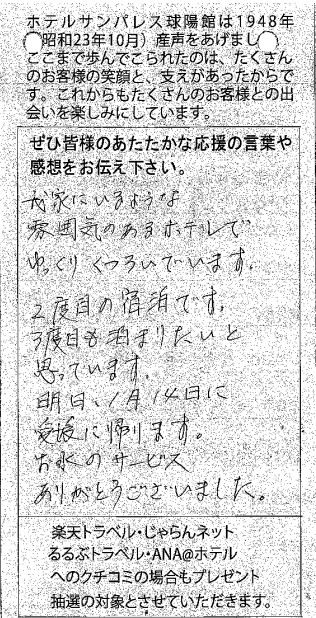 ホテルサンパレス球陽館は1948年
(昭和23年10月）産声をあげまし
ここまで歩んでこられたのは、たくさん
のお客様の笑顔と、支えがあったからで
す。これからもたくさんのお客様との出
会いを楽しみにしています。
ぜひ皆様のあたたかな応援の言葉や
感想をお伝え下さい。
我家にいるような
雰囲気のあるホテルで
ゆっくりくつろいでいます。
2度目の宿泊です。
3度目も泊まりたいと
思っています。
明日、1月14日に
愛媛に帰ります。
お水のサービス
ありがとうございました。
楽天トラベル・じゃらんネット
るるぶトラベル・ANA@ホテル
へのクチコミの場合もプレゼント
抽選の対象とさせていただきます。